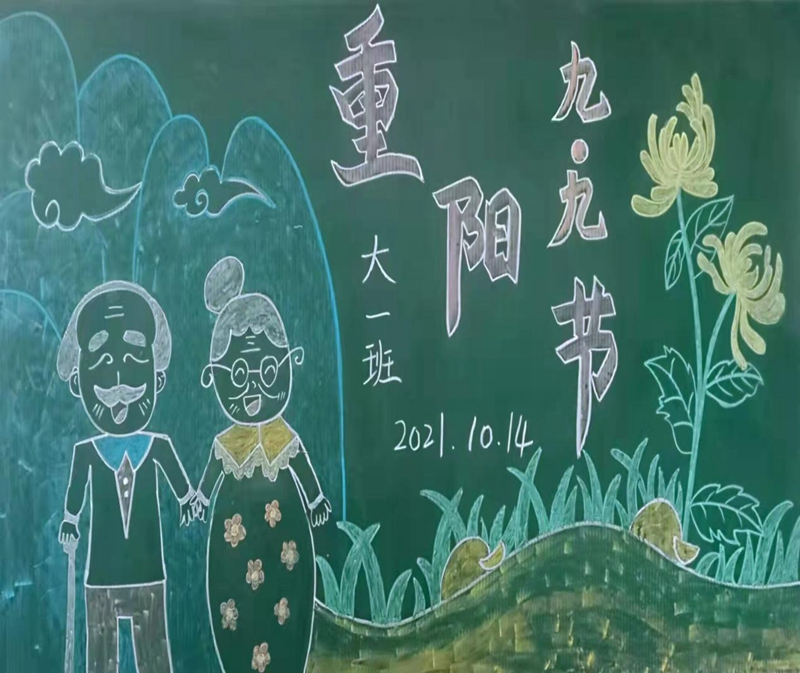 重阳节
九·九
大一班
2021.10.14